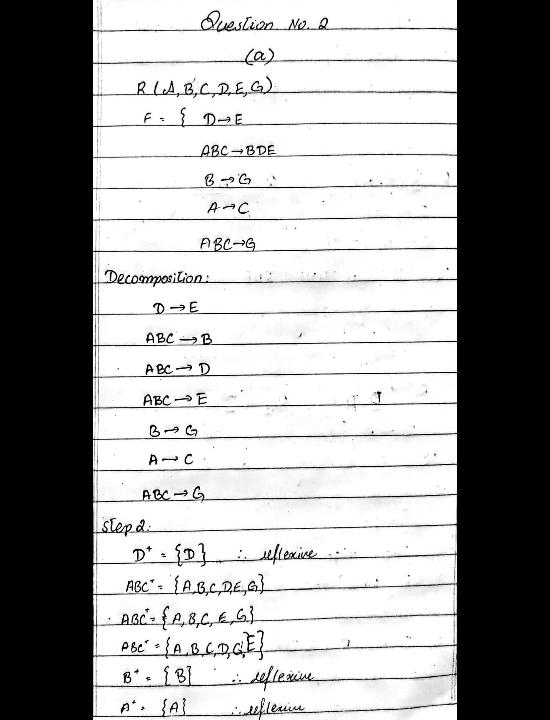 Question No. 2
(a)
R(A,B,C,D,E,G)
F = { D→E
ABC→BDE
B→G
A→C
ABC→G
Decomposition:
D→E
ABC→B
ABC→D
ABC→E
B→G
A→C
ABC→G
step 2:
D⁺ = {D} ∴ reflexive
ABC⁺ = {A,B,C,D,E,G}
ABC⁺ = {A,B,C,E,G}
ABC⁺ = {A,B,C,D,G,E}
B⁺ = {B} ∴ reflexive
A⁺ = {A} ∴ reflexive